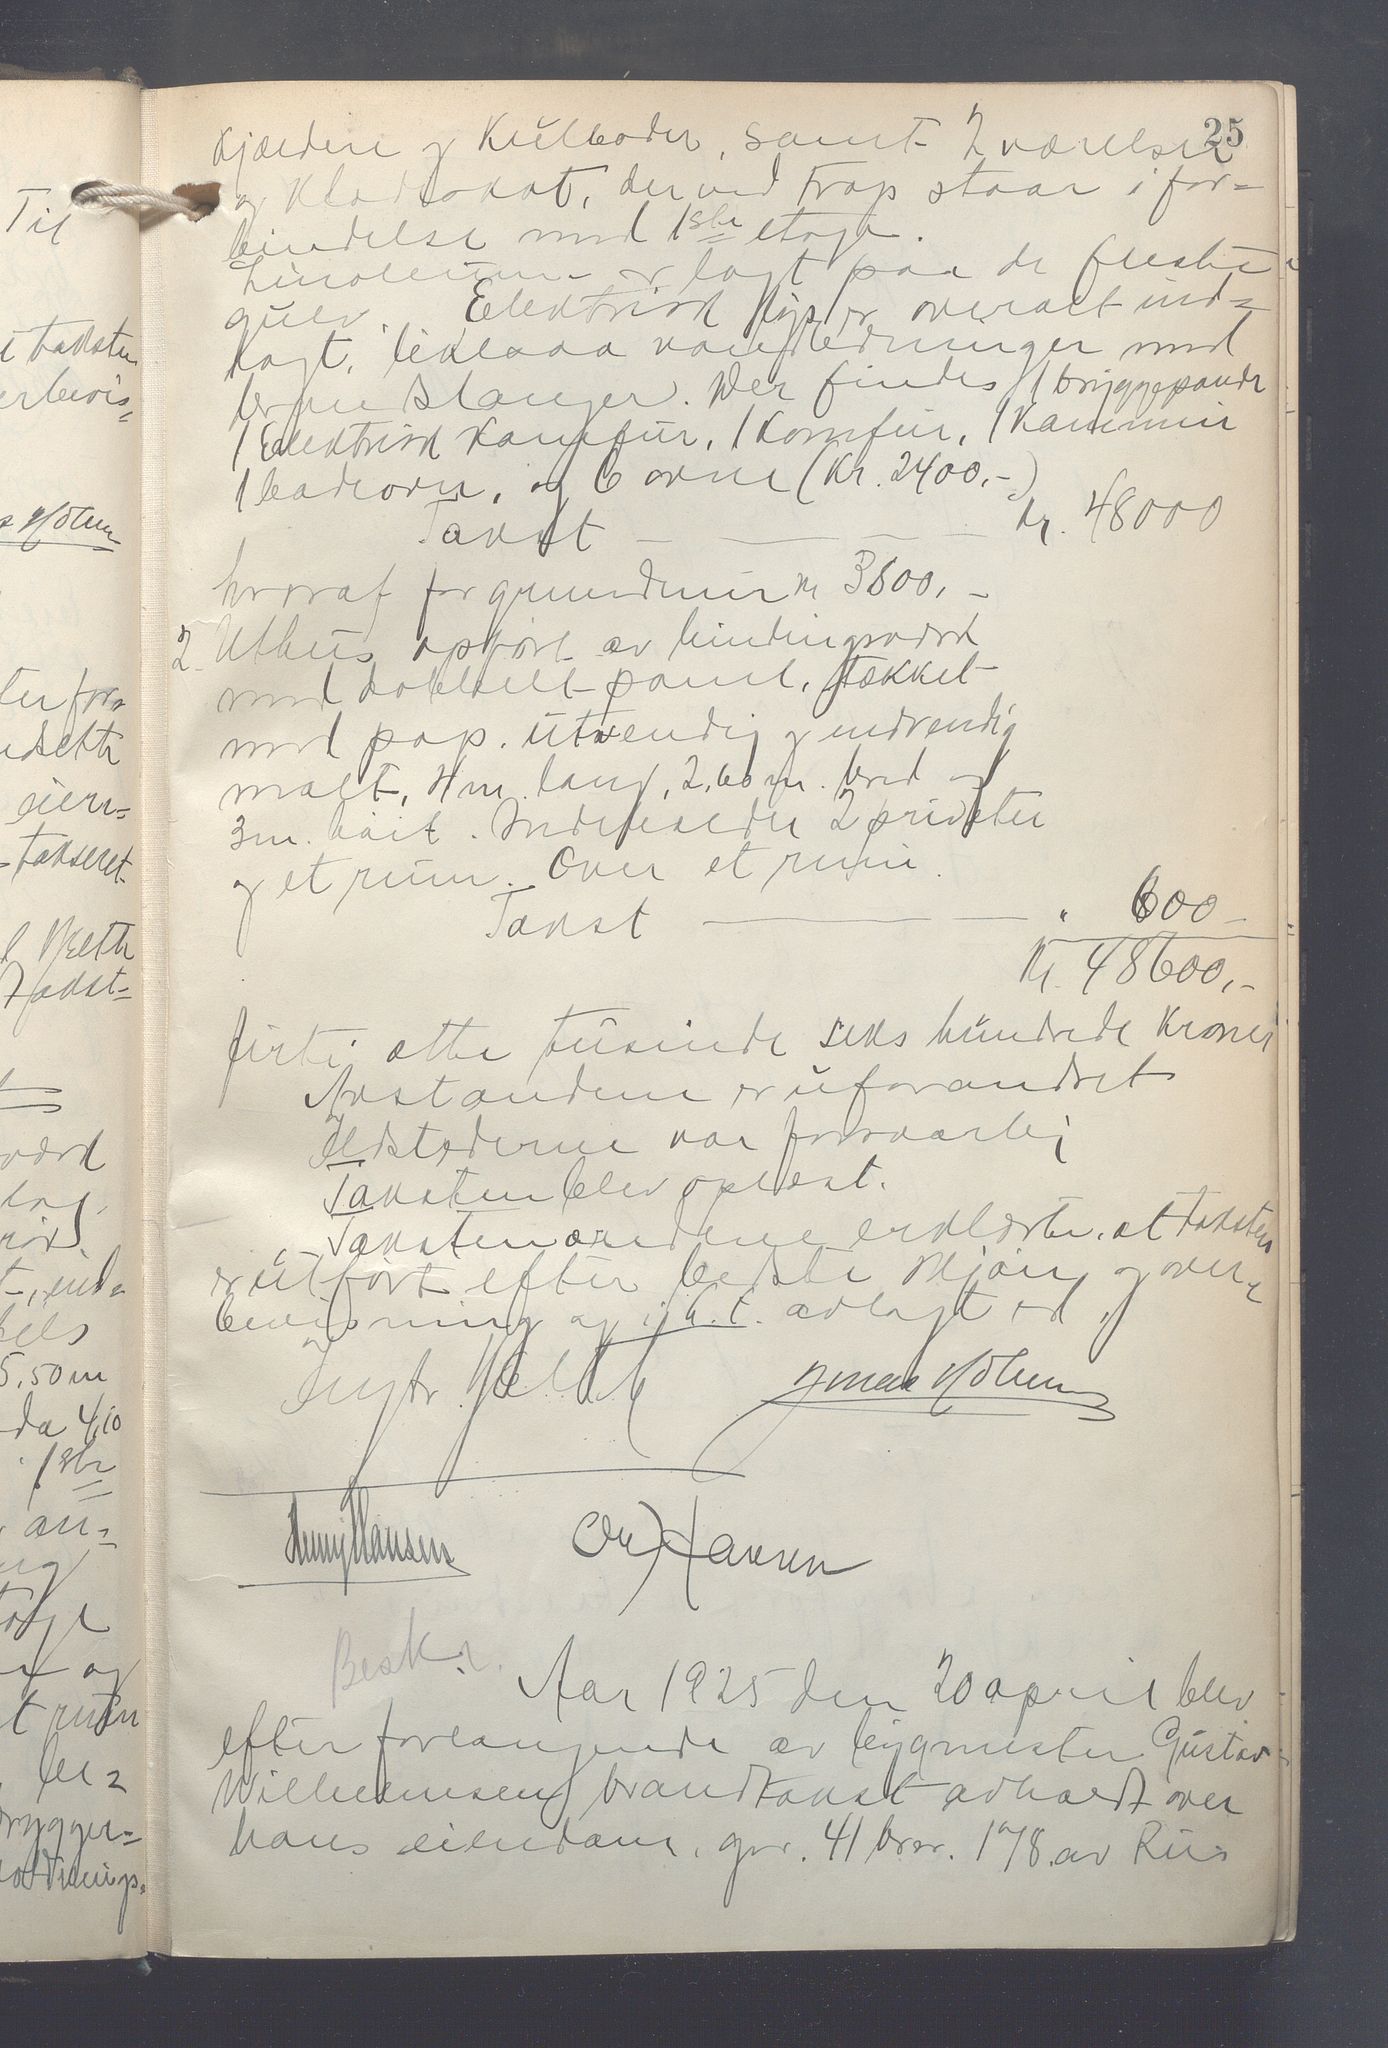 25
Kjældere og Kulboder, samt 2 værelser
og Klædskot, der ved Trap staar i for=
bindelse med 1ste etage.
Linoleum er lagt paa de fleste
gulv. Elektrisk lys er overalt ind=
lagt, likesaa vandledninger med
brandslanger. Der findes 1 bryggepande
1 Elektrisk Komfur, 1 Komfur, 1 Kamin
1 badeovn, og 6 ovne (Kr. 2400,-)
Takst — — — — kr. 48000
hvoraf for grundmur kr 3600,-
2. Uthus opført av bindingsværk
med dobbelt panel, tækket
med pap. utvendig og indvendig
malt, 4 m. lang, 2,60 m. bred og
3 m. høit. Indeholder 2 priveter
og et rum. Over et rum.
Takst — — " 600-
Kr. 48600,-
firti otte tusinde seks hundrede Kroner
Avstandene er uforandret
Ildstederne var forsvarlig
Taksten blev oplæst.
Takstmændene erklærte, at taksten
er utført efter bedste skjøn og over=
bevisning og i h.t. avlagt ed.
Jonas Holum
Henny Hansen Ole Hansen
Besk.
Aar 1925 den 20 april blev
efter forlangende av bygmester Gustav
Wilhelmsen brandtakst avholdt over
hans eiendom, gnr. 41 brnr. 178 av Riis
Til
i taksten
erbevis=
s Holum
ter for=
ndsette
eien=
takseret
Takst=
værk
lag
t, ind=
hels
5,50 m
da 4,10
1ste
an=
tage
r og
t rum
be=
brygger=